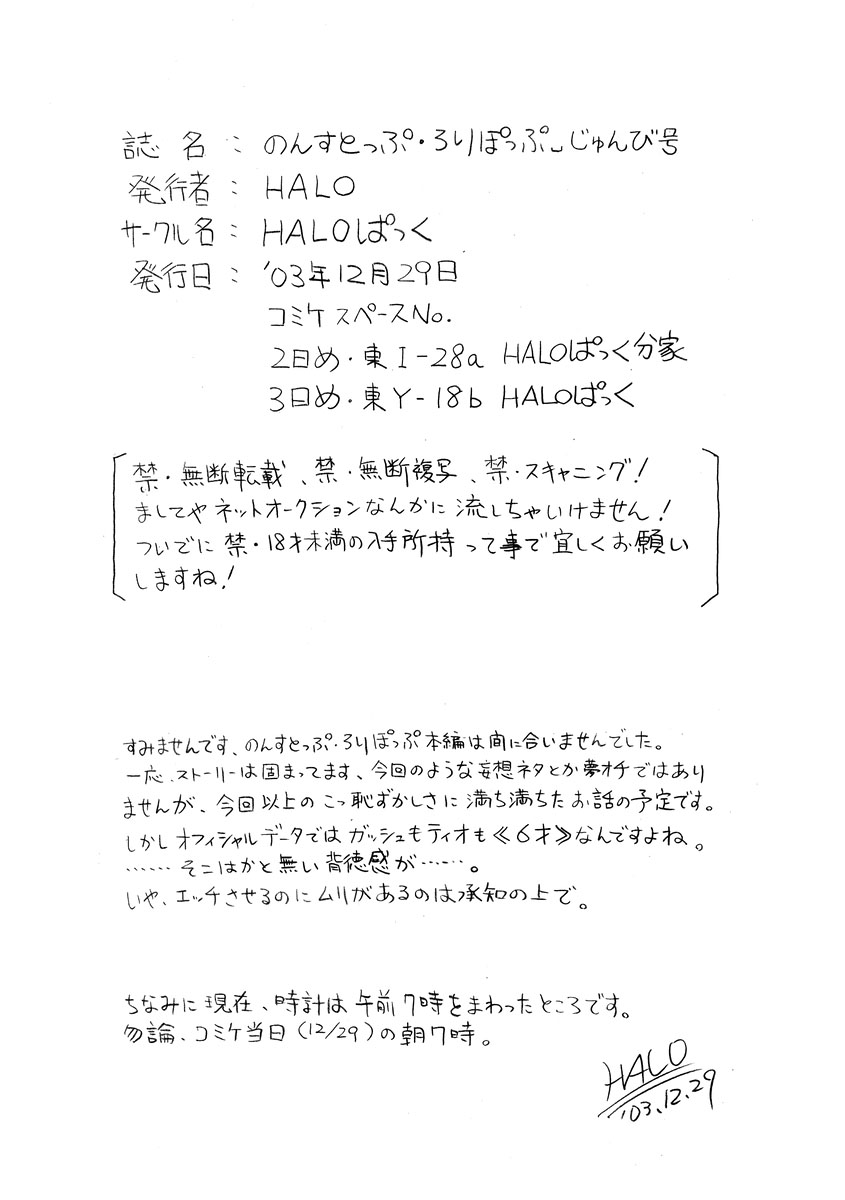 誌名：のんすとっぷ・ろりぽっぷ じゅんび号
発行者：HALO
サークル名：HALOぱっく
発行日：'03年12月29日
コミケスペースNo.
2日め・東I-28a HALOぱっく分家
3日め・東Y-18b HALOぱっく
禁・無断転載、禁・無断複写、禁・スキャニング！
ましてやネットオークションなんかに流しちゃいけません！
ついでに禁・18才未満の入手所持って事で宜しくお願い
しますね！
すみませんです、のんすとっぷ・ろりぽっぷ本編は間に合いませんでした。
一応、ストーリーは固まってます、今回のような妄想ネタとか夢オチではあり
ませんが、今回以上のこっ恥ずかしさに満ち満ちたお話の予定です。
しかしオフィシャルデータではガッシュもティオも≪6才≫なんですよね。
……そこはかと無い背徳感が……。
いや、エッチさせるのにムリがあるのは承知の上で。
ちなみに現在、時計は午前7時をまわったところです。
勿論、コミケ当日（12/29）の朝7時。
HALO
'03.12.29